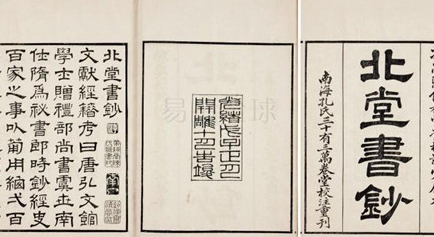 北堂書鈔
南海孔氏三十有三萬卷堂校注重刊
光緒戊子正月
開雕十月告竣
北堂書鈔
文獻經籍考曰唐弘文館
學士贈禮部尚書虞世南
仕隋為祕書郎時鈔經史
百家之事以葡用
易 球